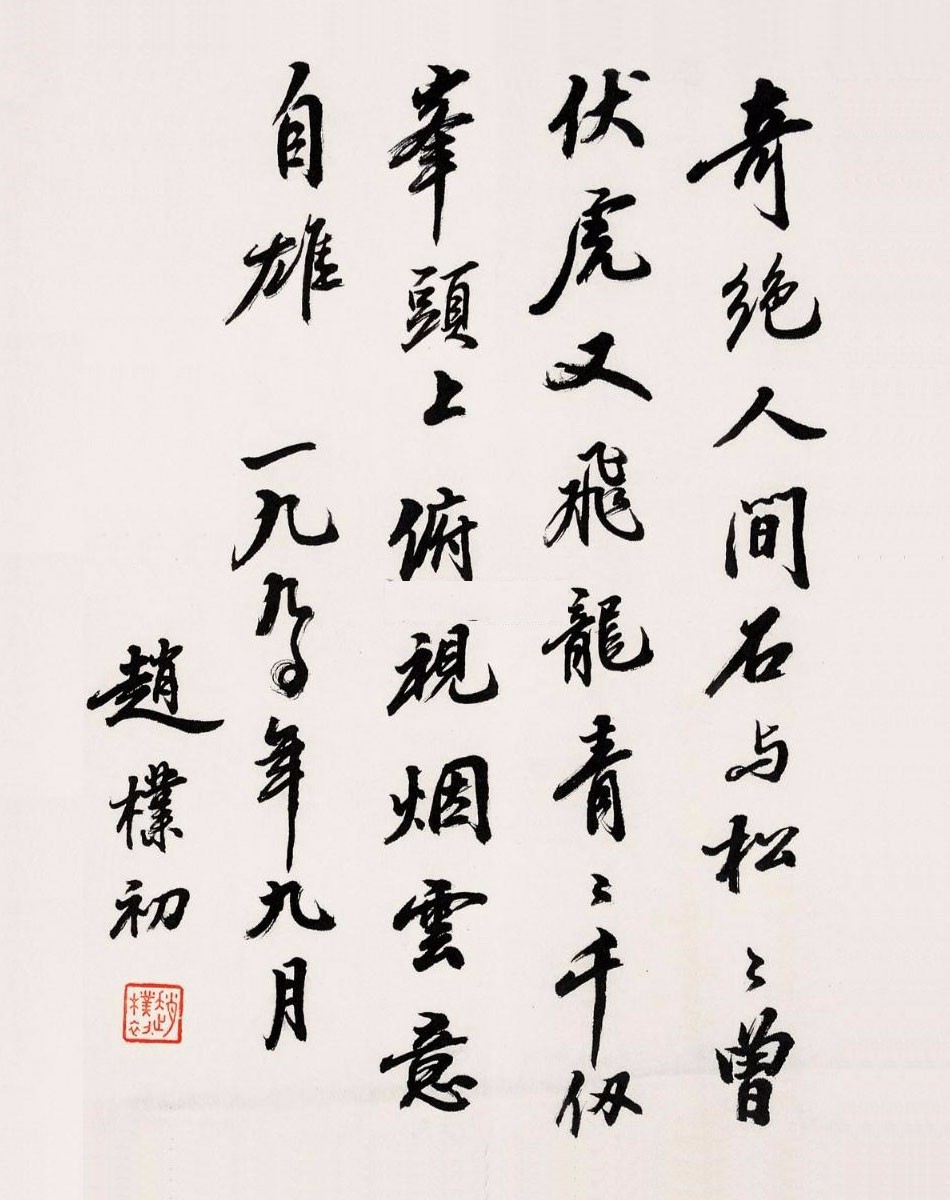 奇绝人间石与松〻曾
伏虎又飛龍青〻千仞
峯頭上俯視烟雲意
自雄 一九九〇年九月
趙樸初
趙樸初